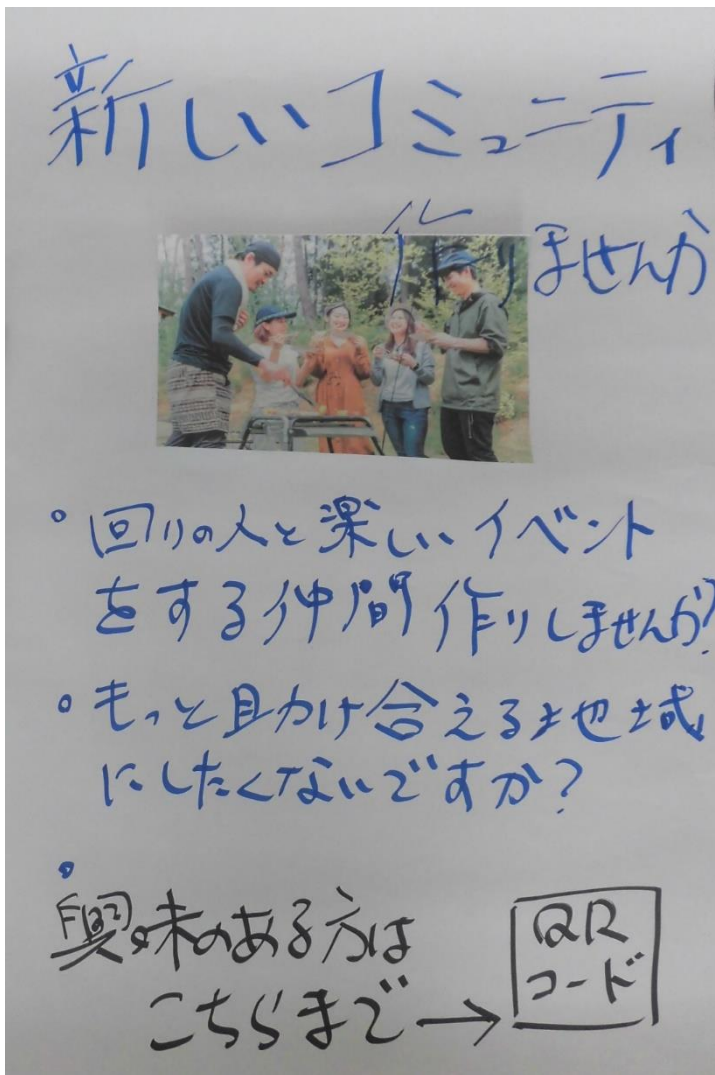 新しいコミュニティ
作りませんか
・回りの人と楽しいイベント
をする仲間作りしませんか?
・もっと助け合える地域
にしたくないですか?
・
興味のある方は
こちらまで→
QR
コード